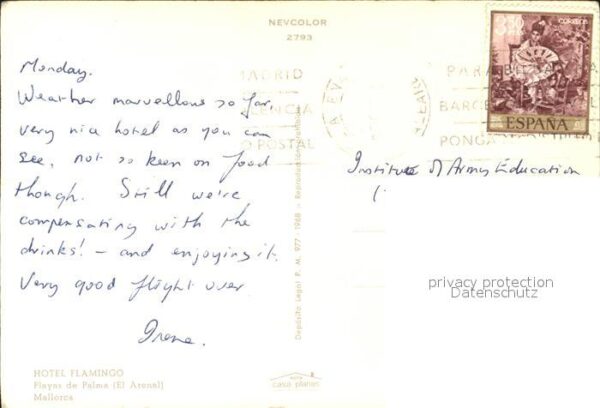 NEVCOLOR
2793
Monday.
Weather marvellous so far,
very nice hotel as you can
see, not so keen on food
though. Still we're
compensating with the
drinks! - and enjoying it.
Very good flight over
Irene.
HOTEL FLAMINGO
Playas de Palma (El Arenal)
Mallorca
Depósito Legal P. M. 977 - 1968 - Reproducción prohibida
casa planas
3,50
CORREOS
ESPAÑA
MADRID
POSTAL
PARA
BARCE
PONGA
Institute of Army Education
privacy protection
Datenschutz